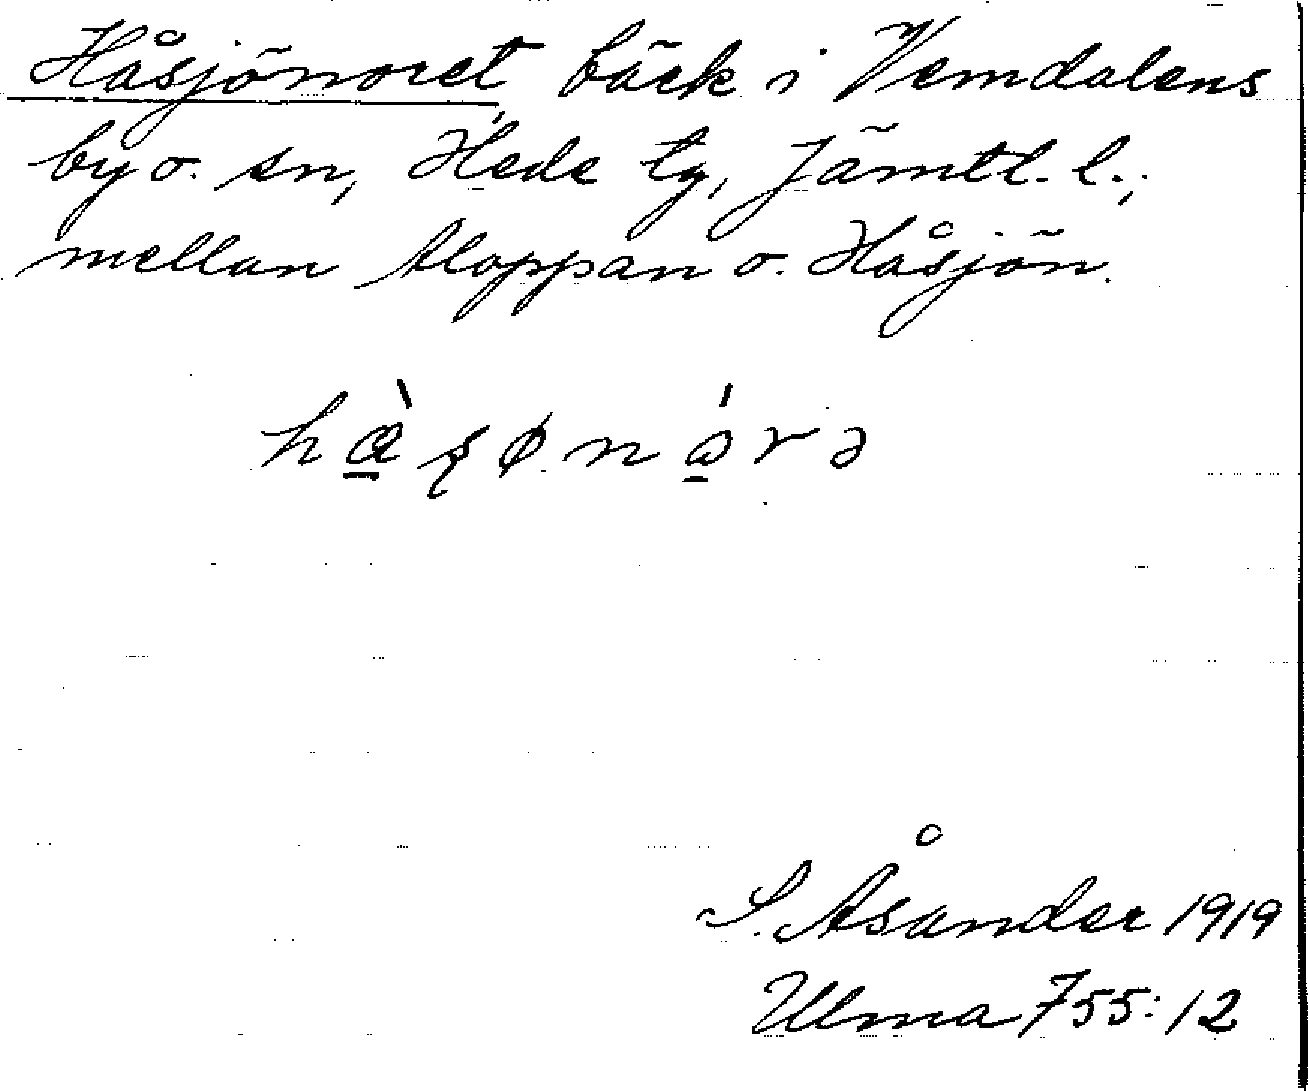 Håsjönoret, bäck i Vemdalens
by o. sn, Hede tg, Jämtl. l.;
mellan Aloppan o. Håsjön.
hæ̀ʂønórə
S. Åsander 1919
Ulma 755:12